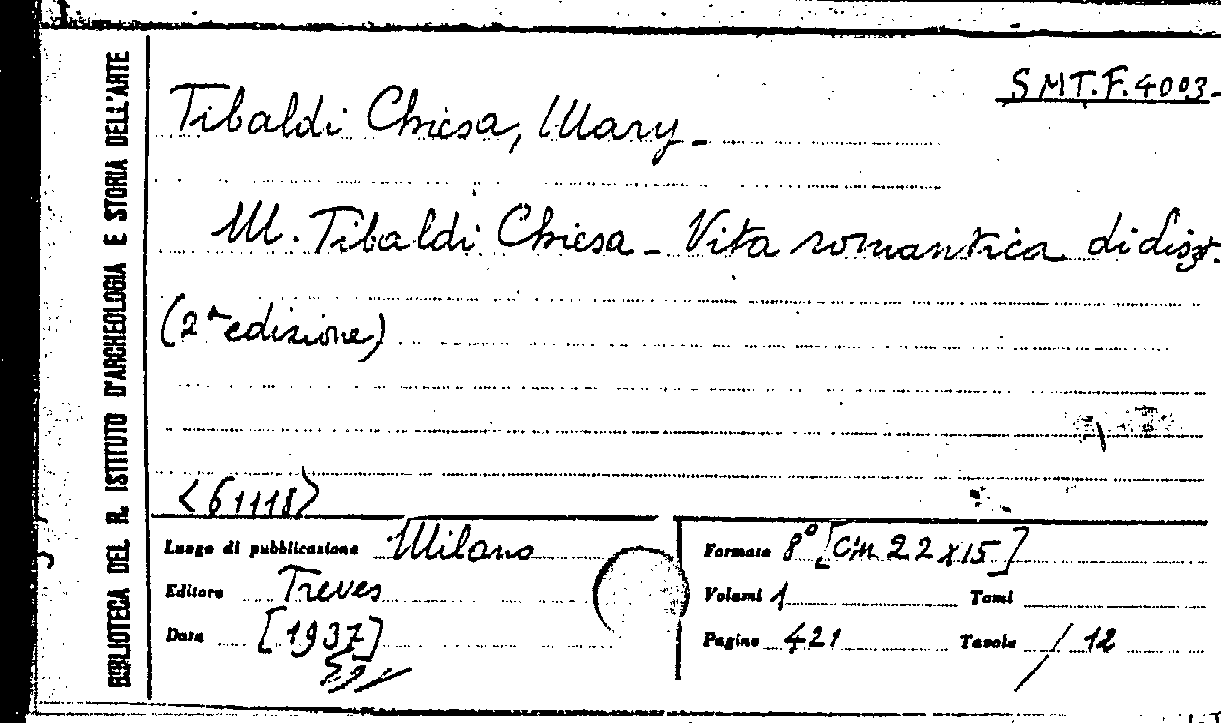 BIBLIOTECA DEL R. ISTITUTO D'ARCHEOLOGIA E STORIA DELL'ARTE
SMT.F.4003
Tibaldi Chiesa, Mary_
M. Tibaldi Chiesa_ Vita romantica di Liszt.
(2ª edizione)
<61118>
Luogo di pubblicazione Milano
Editore Treves
Data [1937]
Formato 8° [cm 22x15]
Volumi 1 Tomi
Pagine 421 Tavole / 12